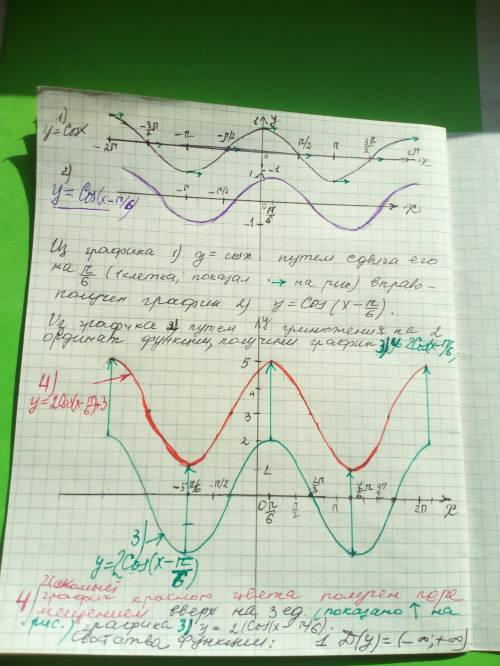 1)
y=Cosx
1 y
-2π -3π/2 -π -π/2 0 π/2 π 3π/2 2π x
-1
2)
y=Cos(x-π/6)
1
-π -π/2 π/6 x
-1
Из графика 1) y=cosx путем сдвига его
на π/6 (1 клетка, показал → на рис) вправо-
получен график 2) y=Cos(x-π/6).
Из графика 2) путем умножения на 2
ординат функции, получен график 3) y=2Cos(x-π/6)
y
5
4)
y=2Cos(x-π/6)+3
4
3
2
1
-5π/6 -π/2 0 π/6 π/2 2π/3 7π/6 3π/2 2π x
3)
y=2Cos(x-π/6)
4) Искомый
график красного цвета получен пере
мещением вверх на 3 ед. (показано ↑ на
рис.) графика 3) y=2Cos(x-π/6).
Свойства функции: 1 D(y)=(-∞;+∞)